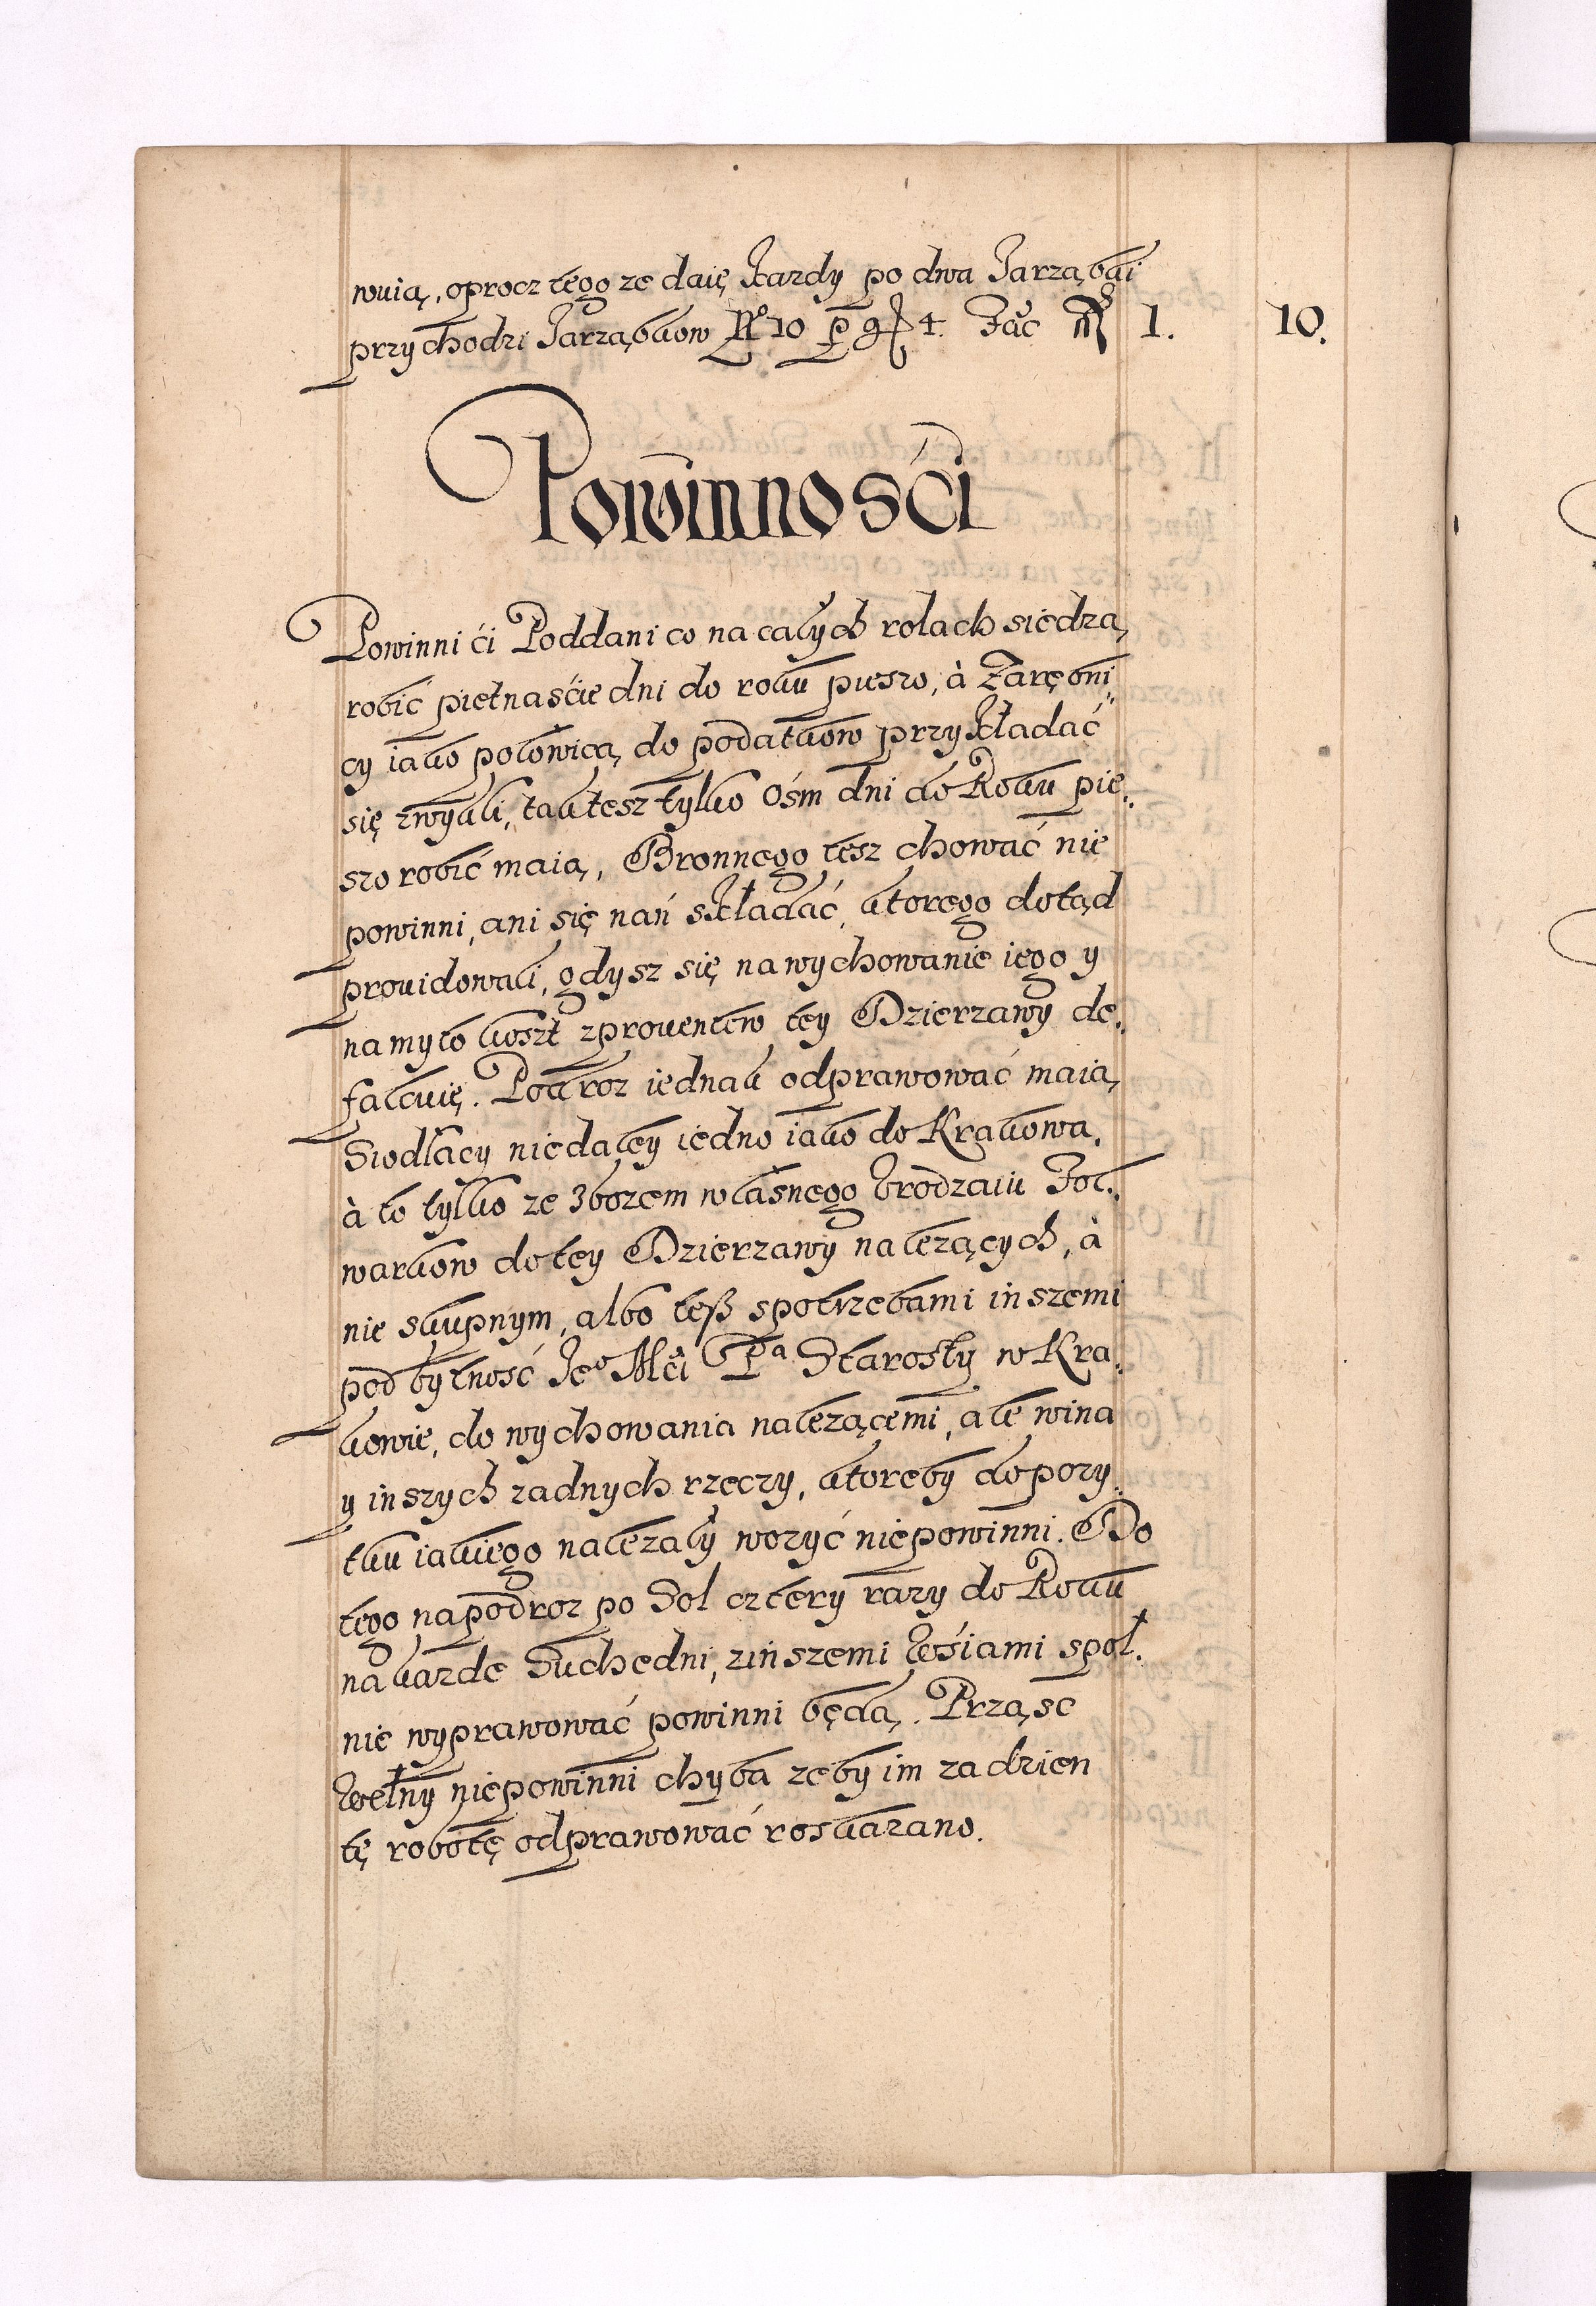 wuią, oprocz tego ze daię kazdy po dwa Jarząbki
przychodzi Jarząbkow No 10 p gr 4. Fac mr 1. 10.
Powinnośći
Powinni ći Poddani co na całych rolach siedzą
robić pietnaśćie dni do roku pieszo, à Zarębni„
cy iako połowicą do podatkow przykładać
się zwykli, tak tesz tylko Ośm dni do Roku pie„
szo robić maią, Bronnego tesz chować nie
powinni, ani się nań składać, ktorego dotąd
prouidowali, gdysz się na wychowanie iego y
na myto koszt zprouentow tey Dzierzawy de„
falkuię. Podroz iednak odprawować maią
Siodłacy niedaley iedno iako do Krakowa,
à to tylko ze zbozem własnego Vrodzaiu Fol„
warkow do tey Dzierzawy nalezących, à
nie skupnym, albo teß spotrzebami inszemi
pod bytność Jeo Mći Pa Starosty w Kra„
kowie, do wychowania nalezącemi, ale wina
y inszych zadnych rzeczy, ktoreby do pozy„
tku iakiego nalezały wozyć niepowinni. Do
tego na podroz po Sol cztery razy do Roku
na kazde Suchedni, zinszemi Wśiami społ„
nie wyprawować powinni będą. Prząsc
Wełny niepowinni chyba zeby im za dzien
tę robotę odprawować roskazano.